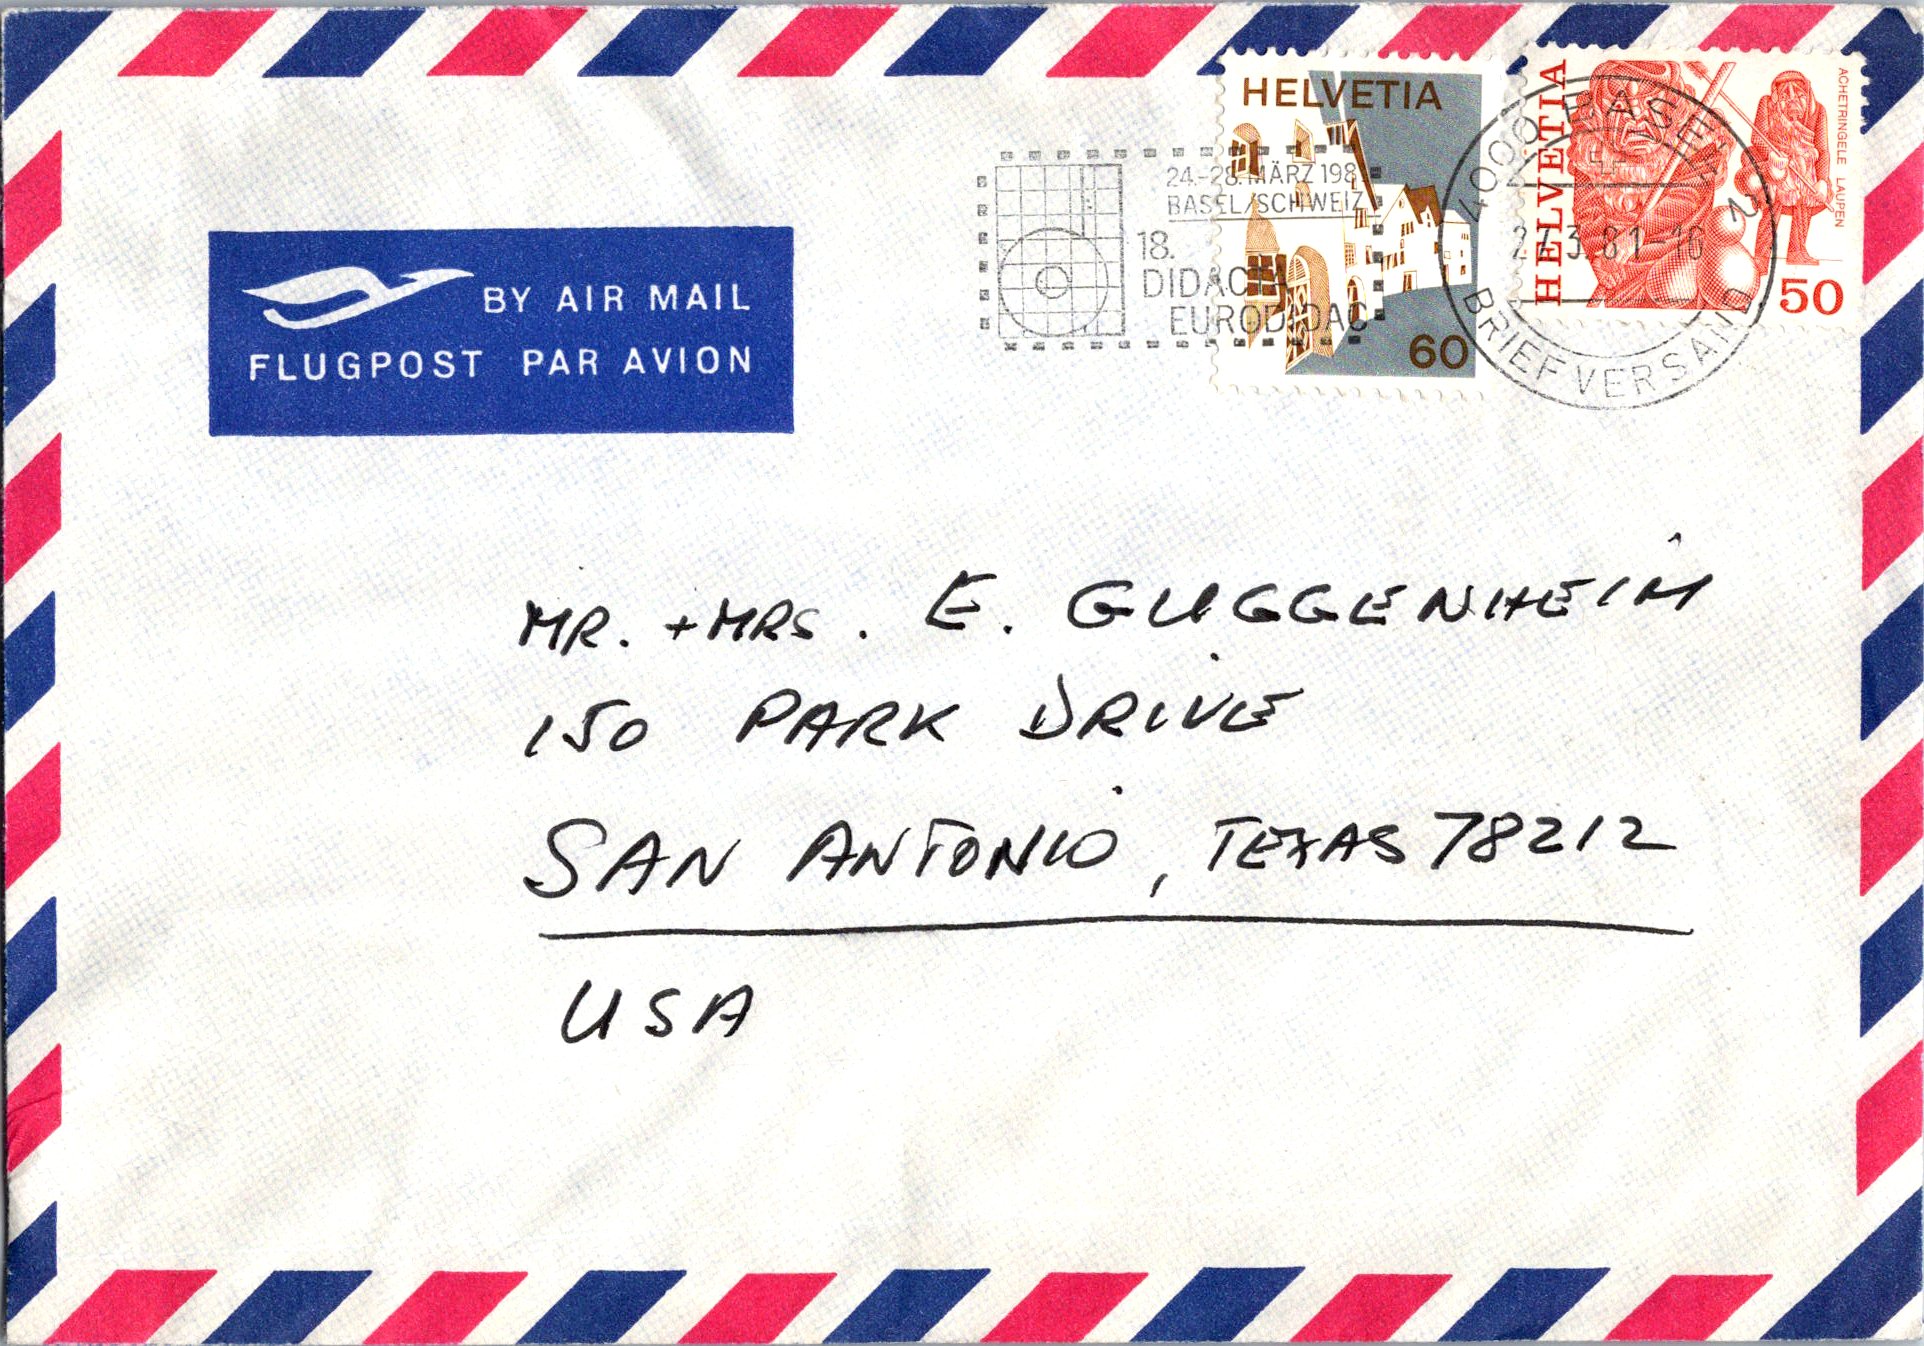 HELVETIA
60
HELVETIA
ACHETRINGELE LAUPEN
50
24.-28. MÄRZ 198
BASEL/SCHWEIZ
18.
DIDACTA
EURODIDAC
4000 BASEL 2
27.3.81-16
BRIEFVERSAND
BY AIR MAIL
FLUGPOST PAR AVION
MR. + MRS. E. GUGGENHEIM
150 PARK DRIVE
SAN ANTONIO, TEXAS 78212
USA